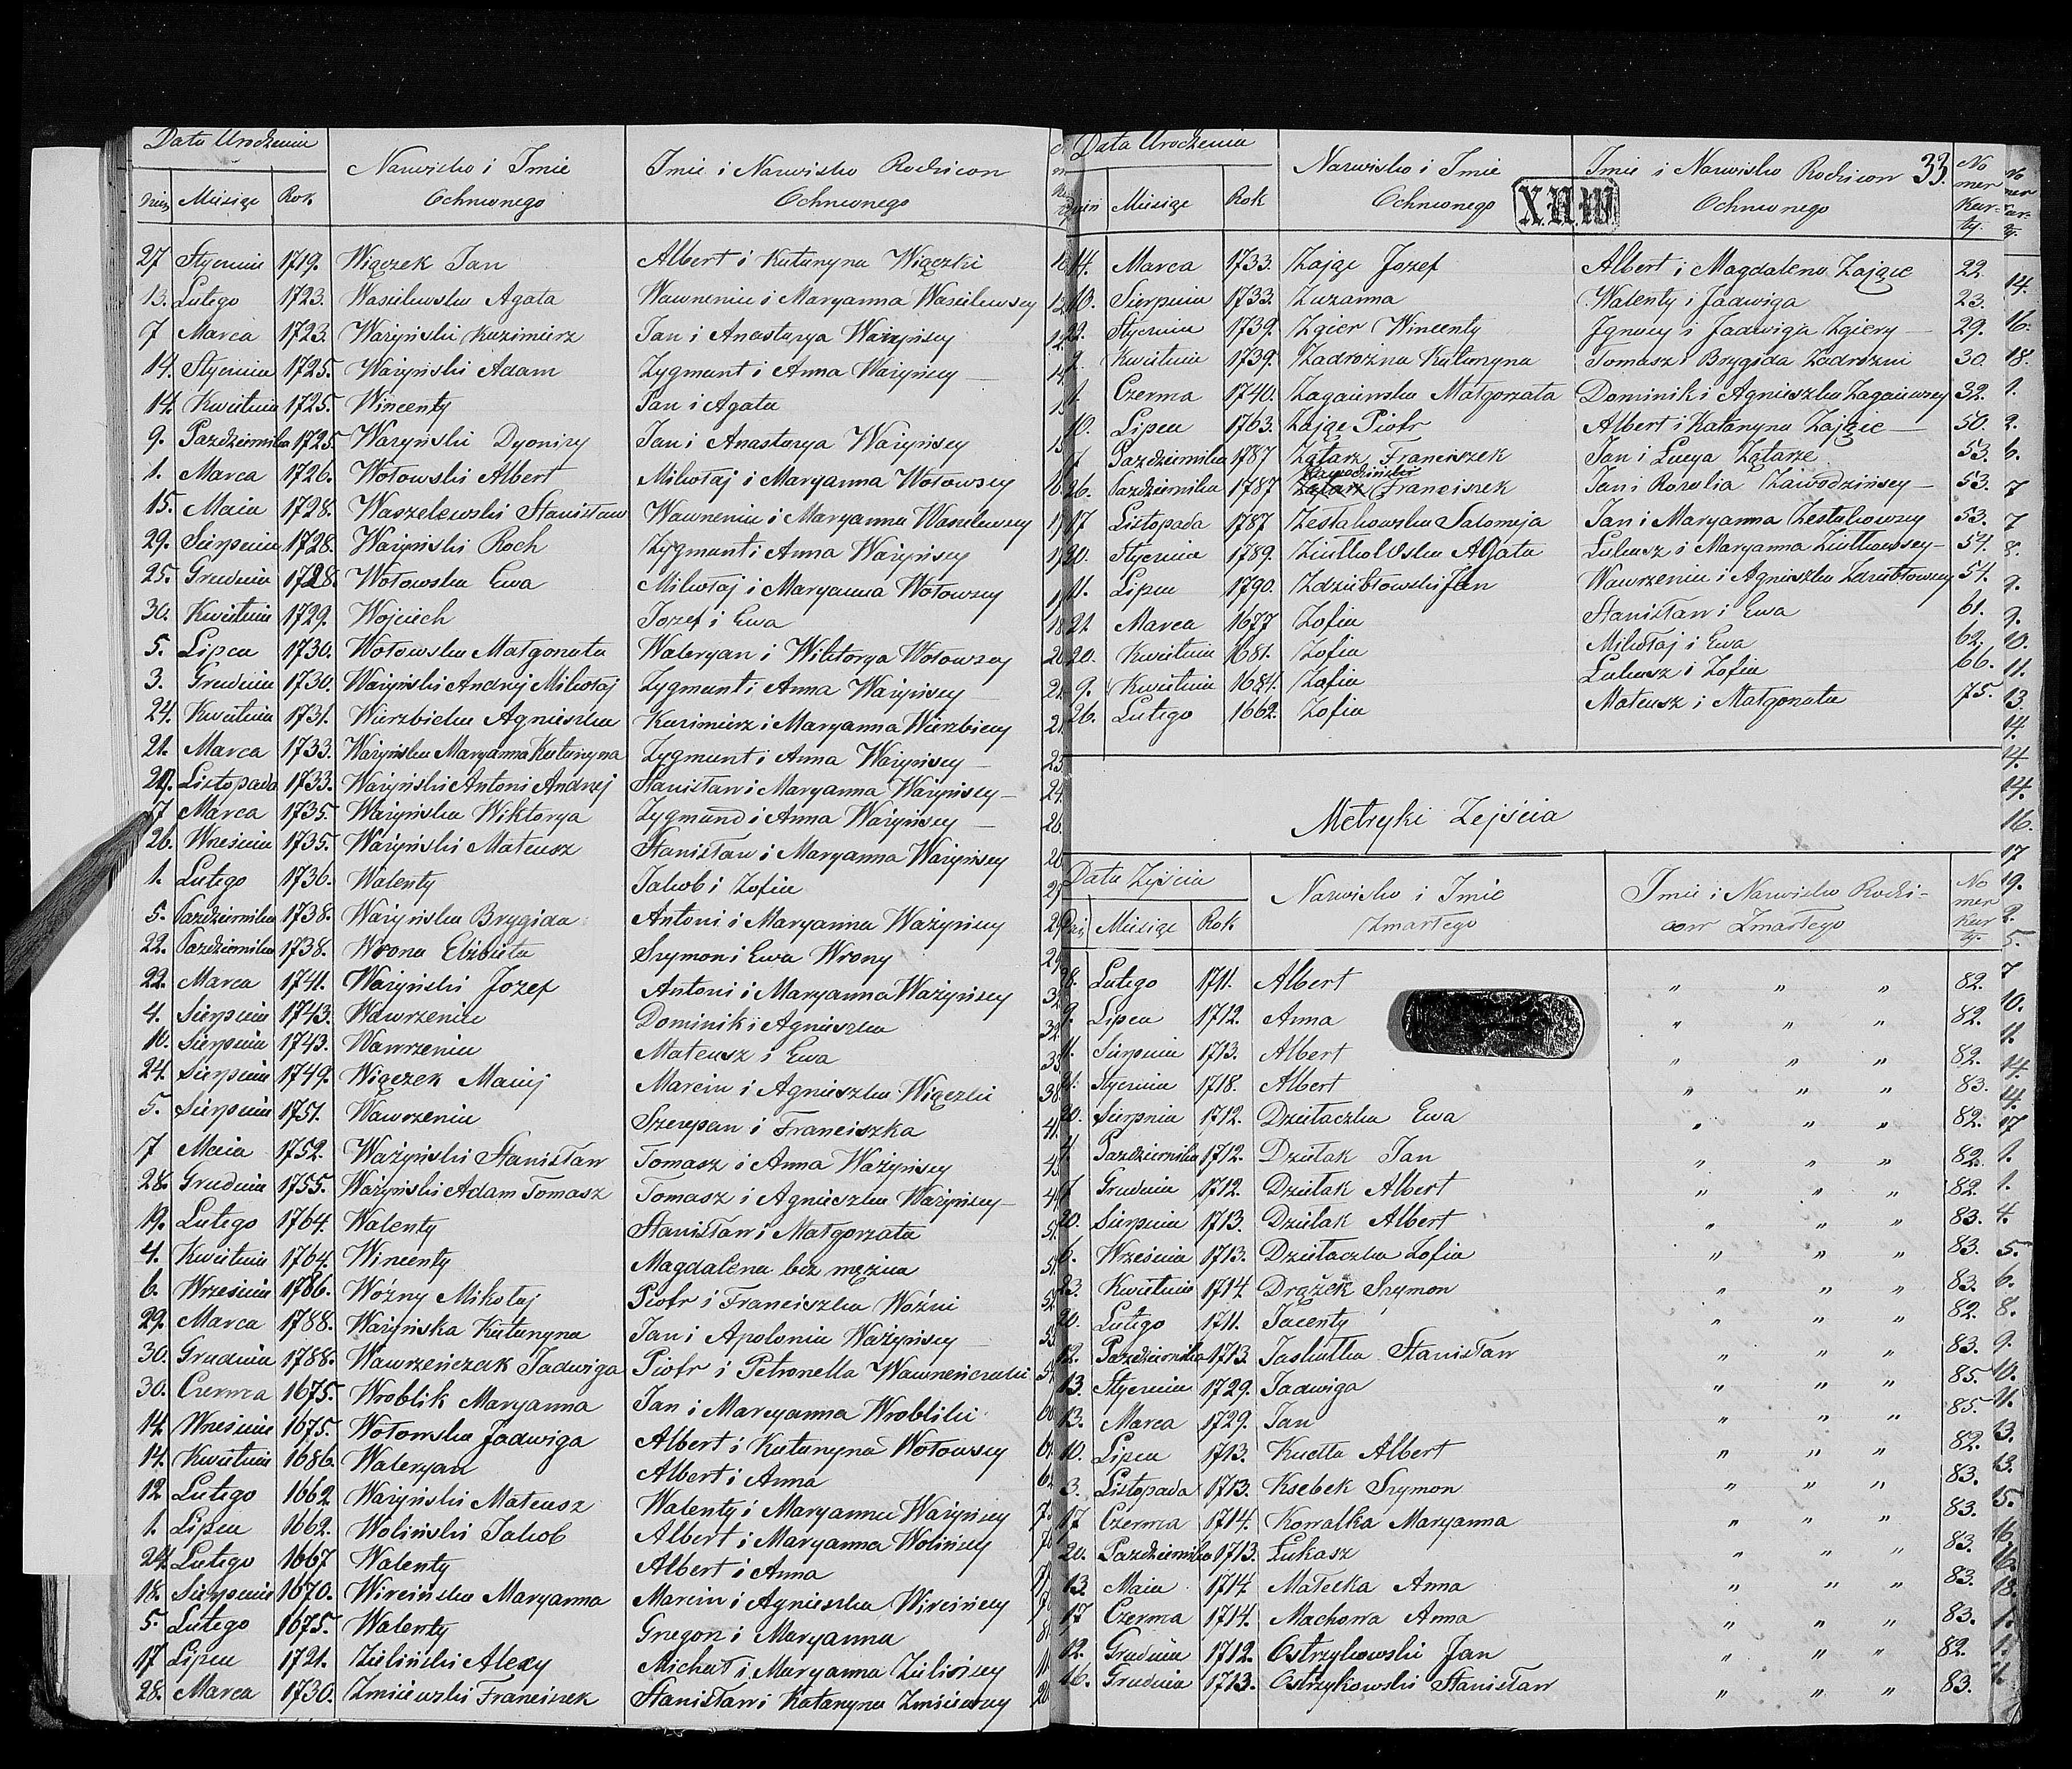 Data Urodzenia
Nazwisko i Imie
Imie i Nazwisko Rodzicow
Dzień Miesiąc Rok Ochrzonego Ochrzonego
27 Stycznia 1719. Wiączek Jan Albert i Katarzyna Wiączki
13. Lutego 1723. Wasilewska Agata Wawrzeniec i Maryanna Wasilewscy
7 Marca 1723. Ważyński Kazimierz Jan i Anastazya Ważyńscy
14. Stycznia 1725. Ważyński Adam Zygmunt i Anna Ważyńscy
14. Kwietnia 1725. Wincenty Jan i Agata
9. Pazdziernika 1725. Ważyński Dyonizy Jan i Anastazya Ważyńscy
1. Marca 1726. Wołowski Albert Mikołaj i Maryanna Wołowscy
15. Maia 1728. Waszelewski Stanisław Wawrzeniec i Maryanna Waszelewscy
29. Sierpnia 1728. Ważyński Roch Zygmunt i Anna Ważyńscy
25. Grudnia 1728. Wołowska Ewa Mikołaj i Maryanna Wołowscy
30. Kwietnia 1729. Wojciech Jozef i Ewa
5. Lipca 1730. Wołowska Małgorzata Waleryan i Wiktorya Wołowscy
3. Grudnia 1730. Ważyński Andrzej Mikołaj Zygmunt i Anna Ważyńscy
24. Kwietnia 1731. Wierzbicka Agnieszka Kazimierz i Maryanna Wierzbiccy
21. Marca 1733. Ważyńska Maryanna Katarzyna Zygmunt i Anna Ważyńscy
29. Listopada 1733. Ważyński Antoni Andrzej Stanisław i Maryanna Ważyńscy
17 Marca 1735. Ważyńska Wiktorya Zygmund i Anna Ważyńscy
26. Wrzesnia 1735. Ważyński Mateusz Stanisław i Maryanna Ważyńscy
1. Lutego 1736. Walenty Jakob i Zofia
5. Pazdziernika 1738. Ważyńska Brygida Antoni i Maryanna Ważyńscy
22. Pazdziernika 1738. Wrona Elzbieta Szymon i Ewa Wrony
22. Marca 1741. Ważyński Jozef Antoni i Maryanna Ważyńscy
4. Sierpnia 1743. Wawrzeniec Dominik i Agnieszka
10. Sierpnia 1743. Wawrzeniec Mateusz i Ewa
24. Sierpnia 1749. Wiączek Maciej Marcin i Agnieszka Wiączki
5. Sierpnia 1751. Wawrzeniec Szczepan i Franciszka
7 Maia 1752. Ważyński Stanisław Tomasz i Anna Ważyńscy
28. Grudnia 1755. Ważyński Adam Tomasz Tomasz i Agnieszka Ważyńscy
19. Lutego 1764. Walenty Stanisław i Małgorzata
4. Kwietnia 1764. Wincenty Magdalena bez męzna
6. Wrzesnia 1786. Woźny Mikołaj Piotr i Franciszka Woźni
29. Marca 1788. Ważyńska Katarzyna Jan i Apolonia Ważyńscy
30. Grudnia 1788. Wawrzeńczak Jadwiga Piotr i Petronella Wawrzeńczaki
30. Czerwca 1675. Wroblik Maryanna Jan i Maryanna Wrobliki
14. Wrzesnia 1675. Wołowska Jadwiga Albert i Katarzyna Wołowscy
14. Kwietnia 1686. Waleryan Albert i Anna
12 Lutego 1662. Ważyński Mateusz Walenty i Maryanna Ważyńscy
1. Lipca 1662. Woliński Jakob Albert i Maryanna Wolińscy
24. Lutego 1667 Walenty Albert i Anna
18. Sierpnia 1670. Wircińska Maryanna Marcin i Agnieszka Wircińscy
5. Lutego 1675. Walenty Gregorz i Maryanna
17 Lipca 1721. Zieliński Alexy Michał i Maryanna Zielińscy
28. Marca 1730. Zmiiewski Franciszek Stanisław i Katarzyna Zmiiewscy
Data Urodzenia
Nazwisko i Imie
Imie i Nazwisko Rodzicow 33.
Nomer Karty.
Dzień Miesiąc Rok Ochrzonego X.H.W Ochrzonego
14. Marca 1733. Zając Jozef Albert i Magdalena Zające 22.
10. Sierpnia 1733. Zuzanna Walenty i Jadwiga 23.
22. Stycznia 1739. Zgier Wincenty Ignacy i Jadwiga Zgiery 29.
2. Kwietnia 1739. Zadrożna Katarzyna Tomasz i Brygida Zadrozni 30.
1. Czerwca 1740. Zagaiewska Małgorzata Dominik i Agnieszka Zagaiewscy 32.
10. Lipca 1763. Zając Piotr Albert i Katarzyna Zające 50.
1 Pazdziernika 1787 Zątarz Franciszek Jan i Lucya Zątarze 53.
26. Pazdziernika 1787 Zawodziński Franciszek Jan i Rozalia Zawodzińscy 53.
17 Listopada 1787 Zestakowska Salomeja Jan i Maryanna Zestakowscy 53.
20. Stycznia 1789. Ziułkowska Agata Łukasz i Maryanna Ziułkowscy 54.
11. Lipca 1790. Zdziubłowski Jan Wawrzeniec i Agnieszka Zdziubłowscy 54.
21. Marca 1677 Zofia Stanisław i Ewa 61.
20. Kwietnia 1681. Zofia Mikołaj i Ewa 62.
9. Kwietnia 1684. Zofia Łukasz i Zofia 66.
26. Lutego 1662. Zofia Mateusz i Małgorzata 75.
Metryki Zejścia
Data Zejścia
Nazwisko i Imie Zmarłego
Imie i Nazwisko Rodzicow Zmarłego
Nomer Karty.
Miesiąc Rok
28. Lutego 1711. Albert " " " 82.
9. Lipca 1712. Anna " " " 82.
Sierpnia 1713. Albert " " " 82.
Stycznia 1718. Albert " " " 83.
20. Sierpnia 1712. Dziełaczka Ewa " " " 82.
4 Pazdziernika 1712. Dziełak Jan " " " 82.
Grudnia 1712. Dziełak Albert " " " 82.
20. Sierpnia 1713. Dziełak Albert " " " 83.
6. Wrzesnia 1713. Dziełaczka Zofia " " " 83.
23. Kwietnia 1714. Drążek Szymon " " " 83.
20. Lutego 1711. Jacenty " " " 82.
12. Pazdziernika 1713. Jaskułka Stanisław " " " 83.
13. Stycznia 1729. Jadwiga " " " 85.
13. Marca 1729. Jan " " " 85.
10. Lipca 1713. Kuctta Albert " " " 82.
3. Listopada 1713. Ksebek Szymon " " " 83.
17 Czerwca 1714. Kowalka Maryanna " " " 83.
20. Pazdziernika 1713. Łukasz " " " 83.
13. Maia 1714. Małecka Anna " " " 83.
17 Czerwca 1714. Machowa Anna " " " 83.
12. Grudnia 1712. Ostrzykowski Jan " " " 82.
16. Grudnia 1713. Ostrzykowski Stanisław " " " 83.